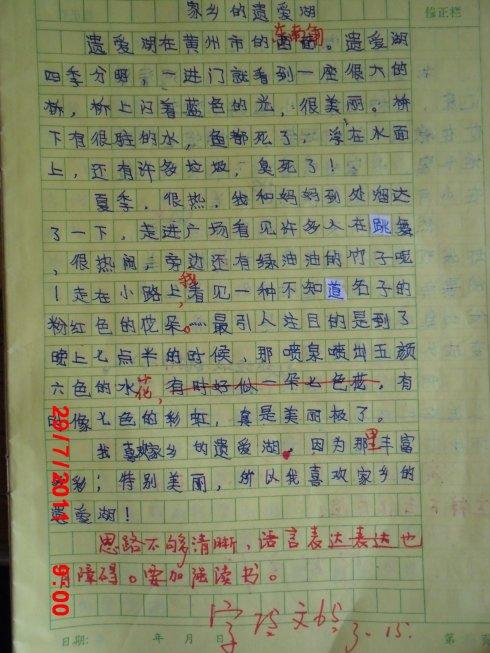 家乡的遗爱湖
修正栏
遗爱湖在黄州市的东南角。遗爱湖
四季分明，一进门就看到一座很大的
桥，桥上闪着蓝色的光，很美丽。桥
下有很脏的水，鱼都死了，浮在水面
上，还有许多垃圾，臭死了！
夏季，很热，我和妈妈到处溜达
了一下，走进广场看见许多人在跳舞
，很热闹，旁边还有绿油油的竹子呢
！走在小路上我看见一种不知道名子的
粉红色的花朵。……最引人注目的是到了
晚上七点半的时候，那喷泉喷出五颜
六色的水花，有时好似一朵七色花，有
时像七色的彩虹，真是美丽极了。
我喜欢家乡的遗爱湖。因为那里丰富
多彩；特别美丽，所以我喜欢家乡的
遗爱湖！
思路不够清晰，语言表达表达也
有障碍。要加强读书。
3.15.
日期： 年 月 日
29/7/2011 9:00